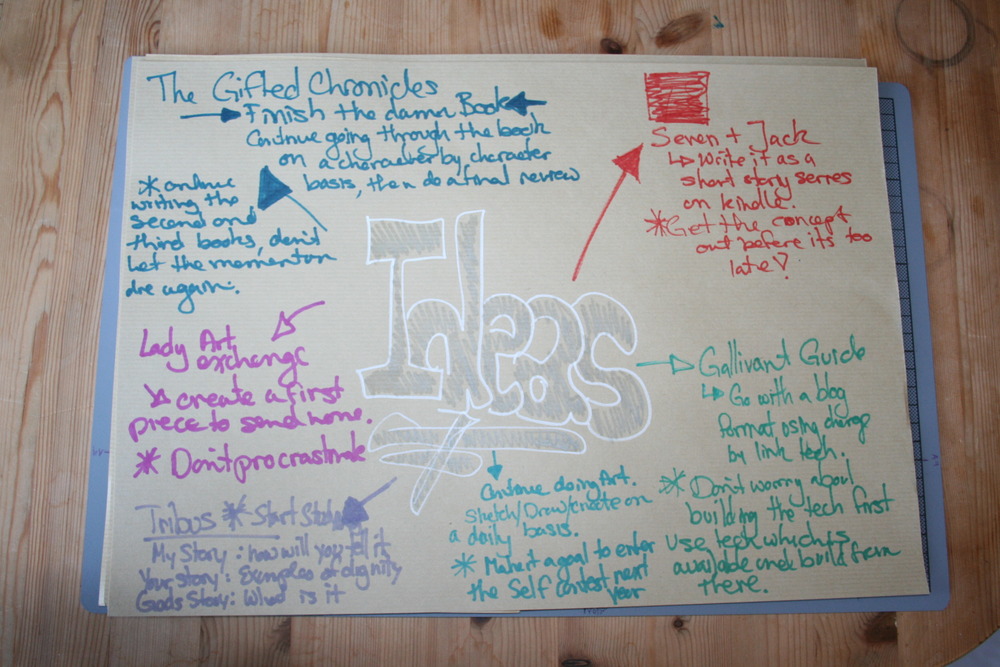 The Gifted Chronicles
Finish the damn Book
Continue going through the book
on a character by character
basis, then do a final review
*continue
writing the
second and
third books, don't
let the momentum
die again.
Seven + Jack
Write it as a
short story series
on kindle.
*Get the concept
out before its too
late!
Ideas
Lady Art
exchange
create a first
piece to send home.
* Don't procrastinate
Gallivant Guide
Go with a blog
format using
by link tech.
* Don't worry about
building the tech first
use tech which is
available and build from
there.
Continue doing Art.
Sketch/Draw/create on
a daily basis.
* Make it a goal to enter
the Self contest next
year
Tribus * Start Study
My Story: how will you tell it
Your story: Examples of dignity
Gods Story: What is it